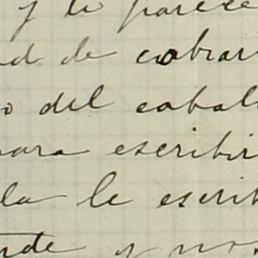 y le parece
d de cobrar
o del cabal
para escribir
la le escrib
nde y nos